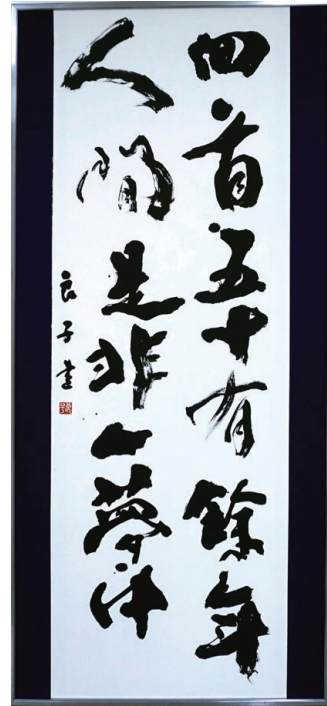 回首五十有餘年
人間是非一夢中
良子書